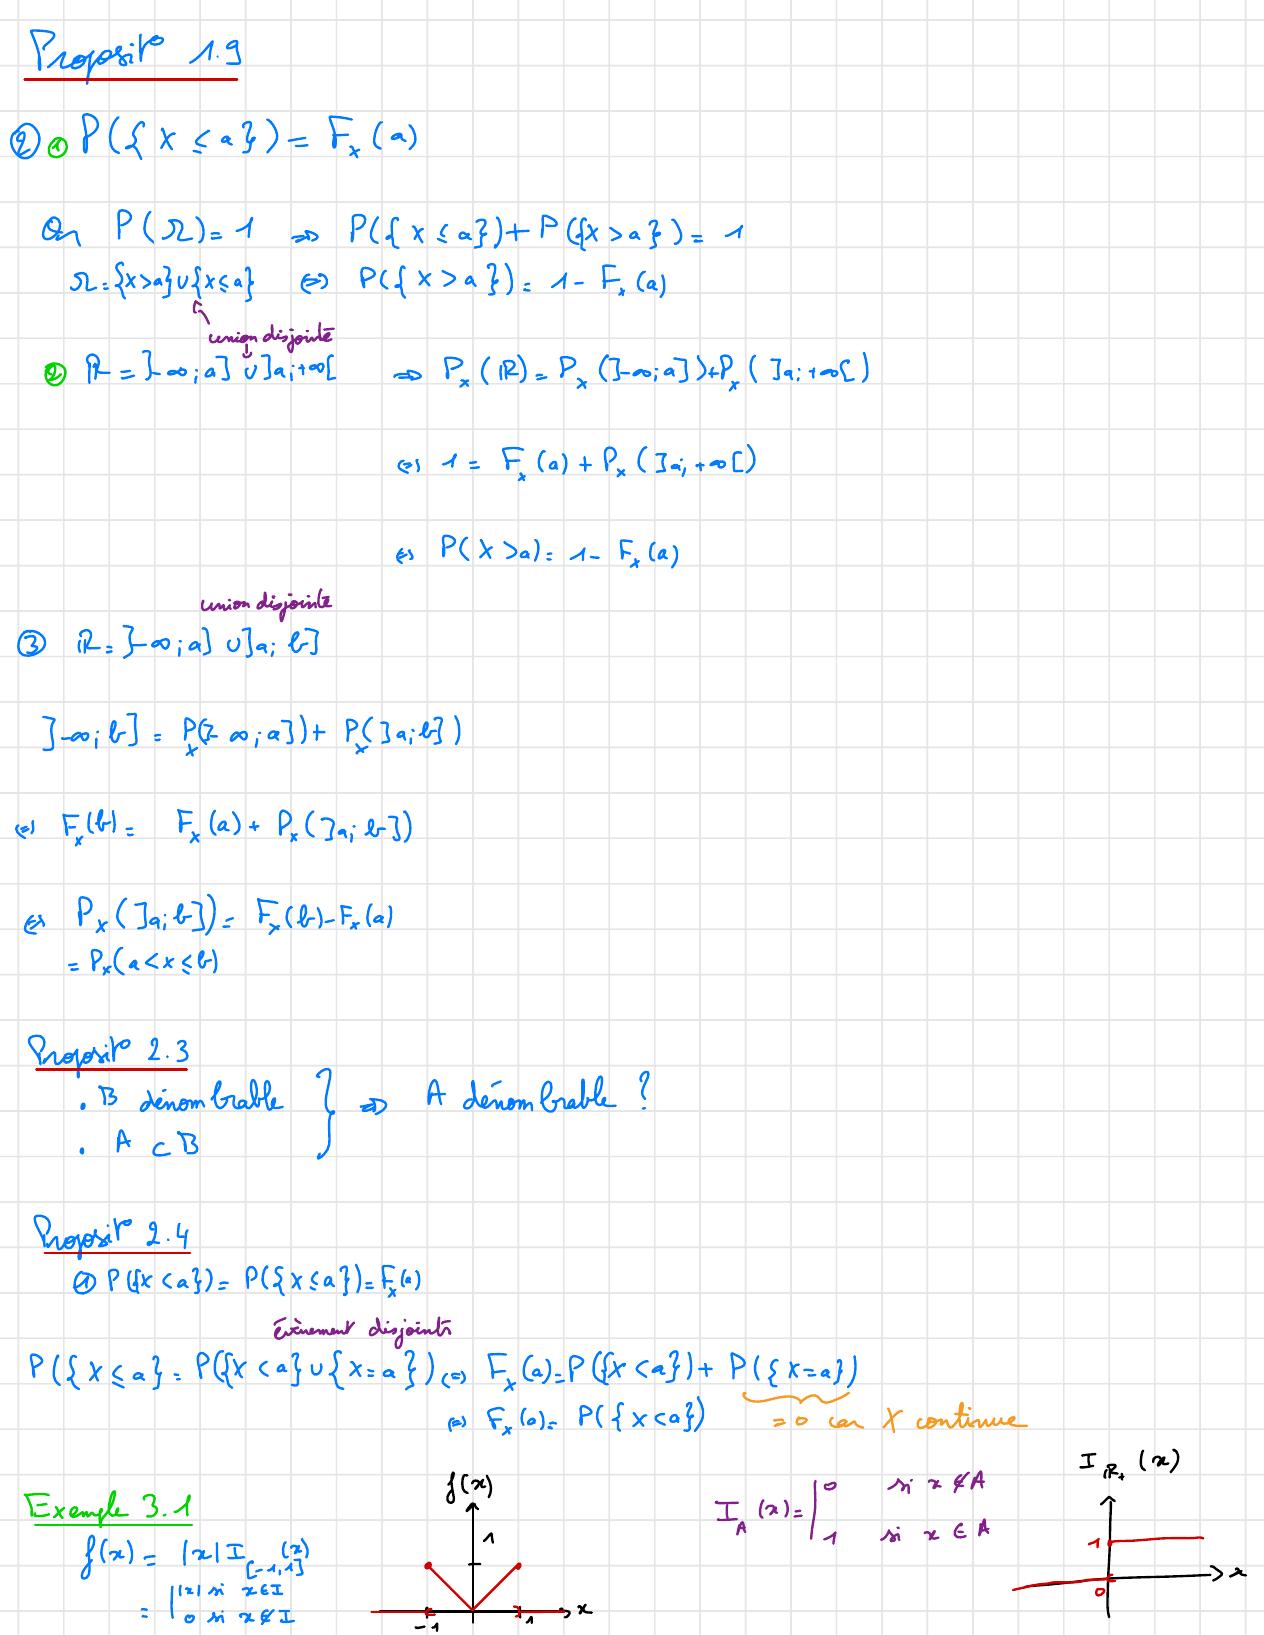 Proposit° 1.9
② ① P({X ≤ a}) = F_X(a)
On P(Ω) = 1 ⇒ P({X ≤ a}) + P({X > a}) = 1
Ω = {X > a} ∪ {X ≤ a} ⇔ P({X > a}) = 1 - F_X(a)
union disjointe
② ℝ = ]-∞; a] ∪ ]a; +∞[ ⇒ P_X(ℝ) = P_X(]-∞; a]) + P_X(]a; +∞[)
⇔ 1 = F_X(a) + P_X(]a; +∞[)
⇔ P(X > a) = 1 - F_X(a)
union disjointe
③ ℝ = ]-∞; a] ∪ ]a; b]
]-∞; b] = P_X(]-∞; a]) + P_X(]a; b])
⇔ F_X(b) = F_X(a) + P_X(]a; b])
⇔ P_X(]a; b]) = F_X(b) - F_X(a)
= P_X(a < x ≤ b)
Proposit° 2.3
. B dénombrable } ⇒ A dénombrable ?
. A ⊂ B
Proposit° 2.4
① P({X < a}) = P({X ≤ a}) = F_X(a)
Évènement disjoints
P({X ≤ a} = P({X < a} ∪ {X = a}) ⇔ F_X(a) = P({X < a}) + P({X = a})
⇔ F_X(a) = P({X < a}) = 0 car X continue
Exemple 3.1
f(x) = |x| I_[-1,1](x)
= | |x| si x ∈ I
0 si x ∉ I
f(x)
1
-1 1 x
I_A(x) = | 0 si x ∉ A
1 si x ∈ A
I_ℝ+(x)
1
0 x